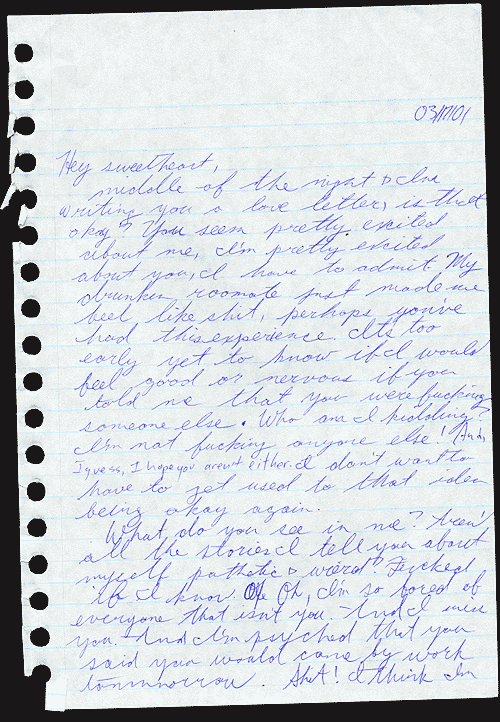 03/17/01
Hey sweetheart,
middle of the night & I'm
writing you a love letter, is that
okay? You seem pretty excited
about me, I'm pretty excited
about you, I have to admit. My
drunken roomate just made me
feel like shit, perhaps you've
had this experience. It's too
early yet to know if I would
feel good or nervous if you
told me that you were fucking
someone else. Who am I kidding?
I'm not fucking anyone else! (And,
I guess, I hope you aren't either. I don't want to
have to get used to that idea
being okay again.
What do you see in me? Aren't
all the stories I tell you about
myself pathetic & weird? Fucked
if I know. Oh, I'm so bored of
everyone that isn't you. And I miss
you. And I'm psyched that you
said you would come by work
tommorrow. Shit! I think I'm